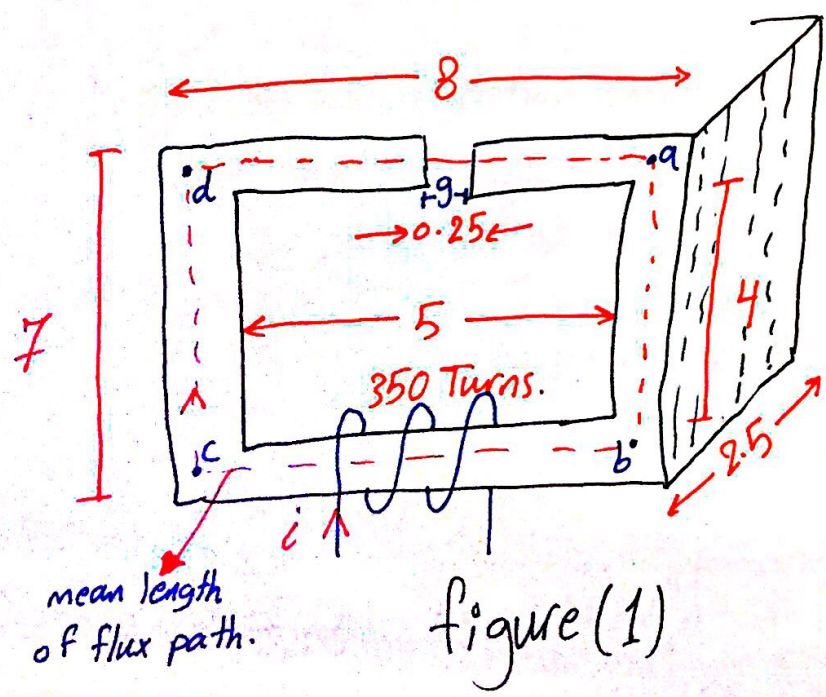 8
a
d
g
0.25
7
5
4
350 Turns.
c
b
2.5
i
mean length
of flux path.
figure (1)